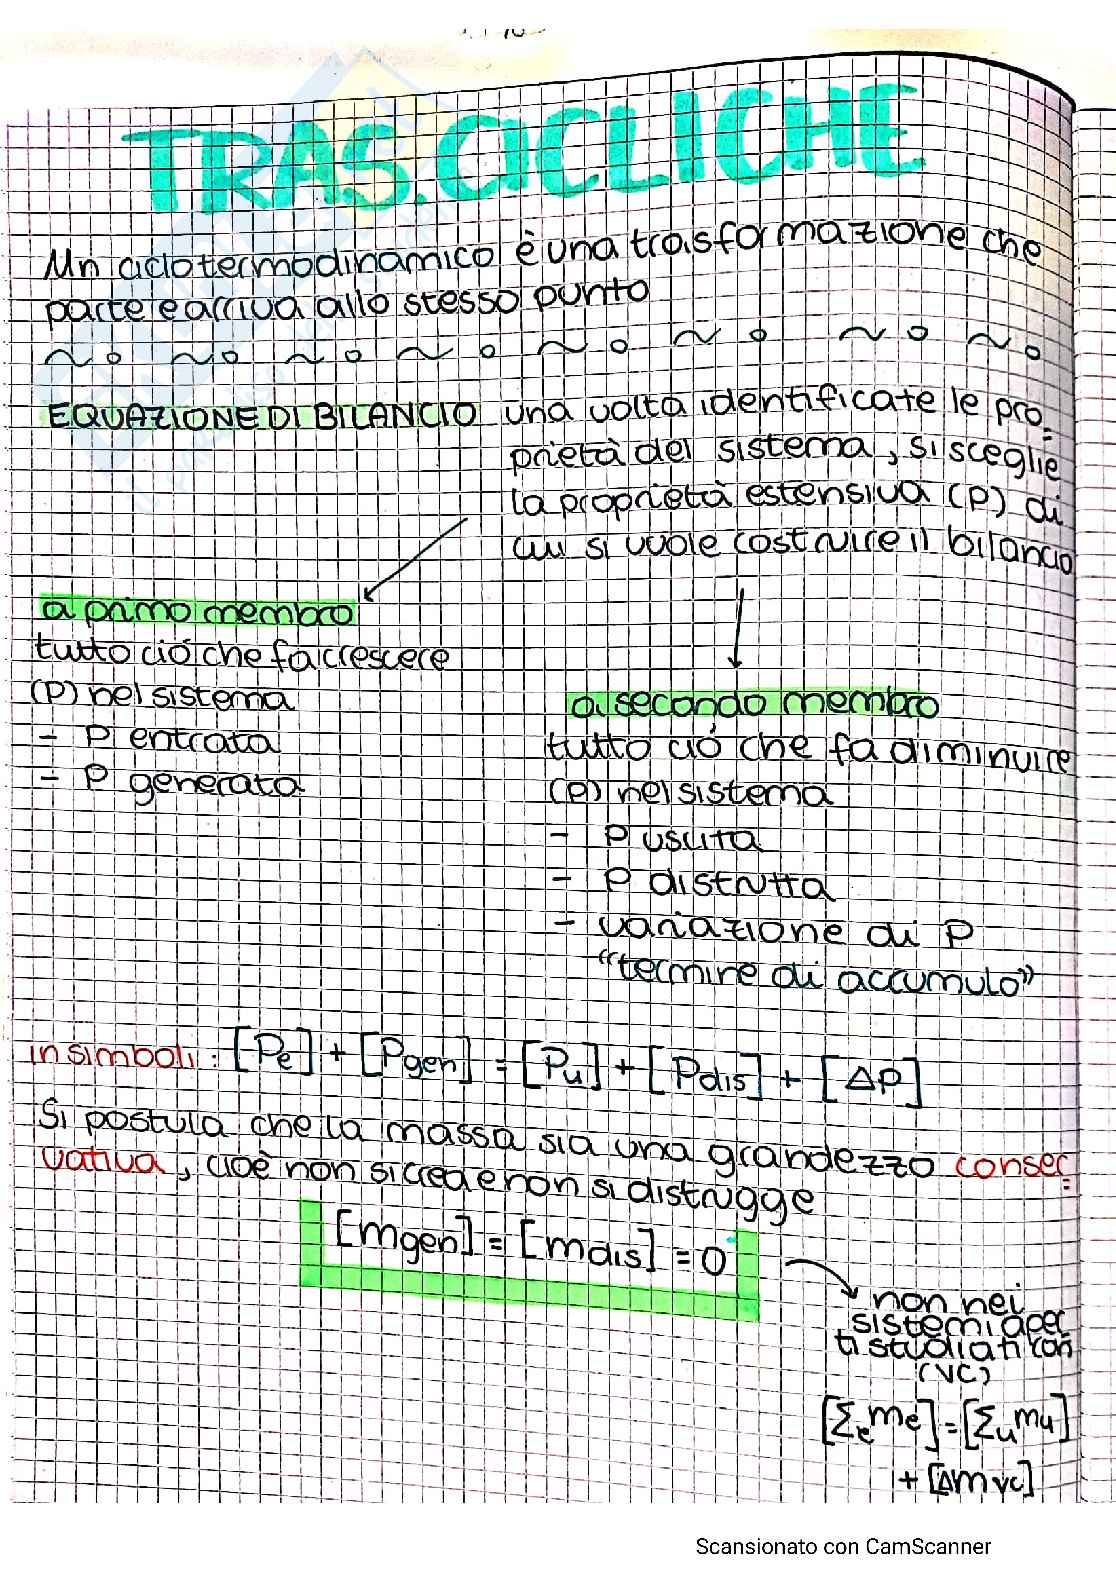 TRAS. CICLICHE
Un ciclo termodinamico è una trasformazione che
parte e arriva allo stesso punto
EQUAZIONE DI BILANCIO una volta identificate le pro
prietà del sistema, si sceglie
la proprietà estensiva (P) di
cui si vuole costruire il bilancio
a primo membro
tutto ciò che fa crescere
(P) nel sistema
- P entrata
- P generata
a secondo membro
tutto ciò che fa diminuire
(P) nel sistema
- P uscita
- P distrutta
- variazione di P
"termine di accumulo"
in simboli: [Pe] + [Pgen] = [Pu] + [Pdis] + [ΔP]
Si postula che la massa sia una grandezzo conser
vativa, cioè non si crea e non si distrugge
[mgen] = [mdis] = 0
non nei
sistemi aper
ti studiati con
(VC)
[Σe me] = [Σu mu]
+ [Δm vc]
Scansionato con CamScanner